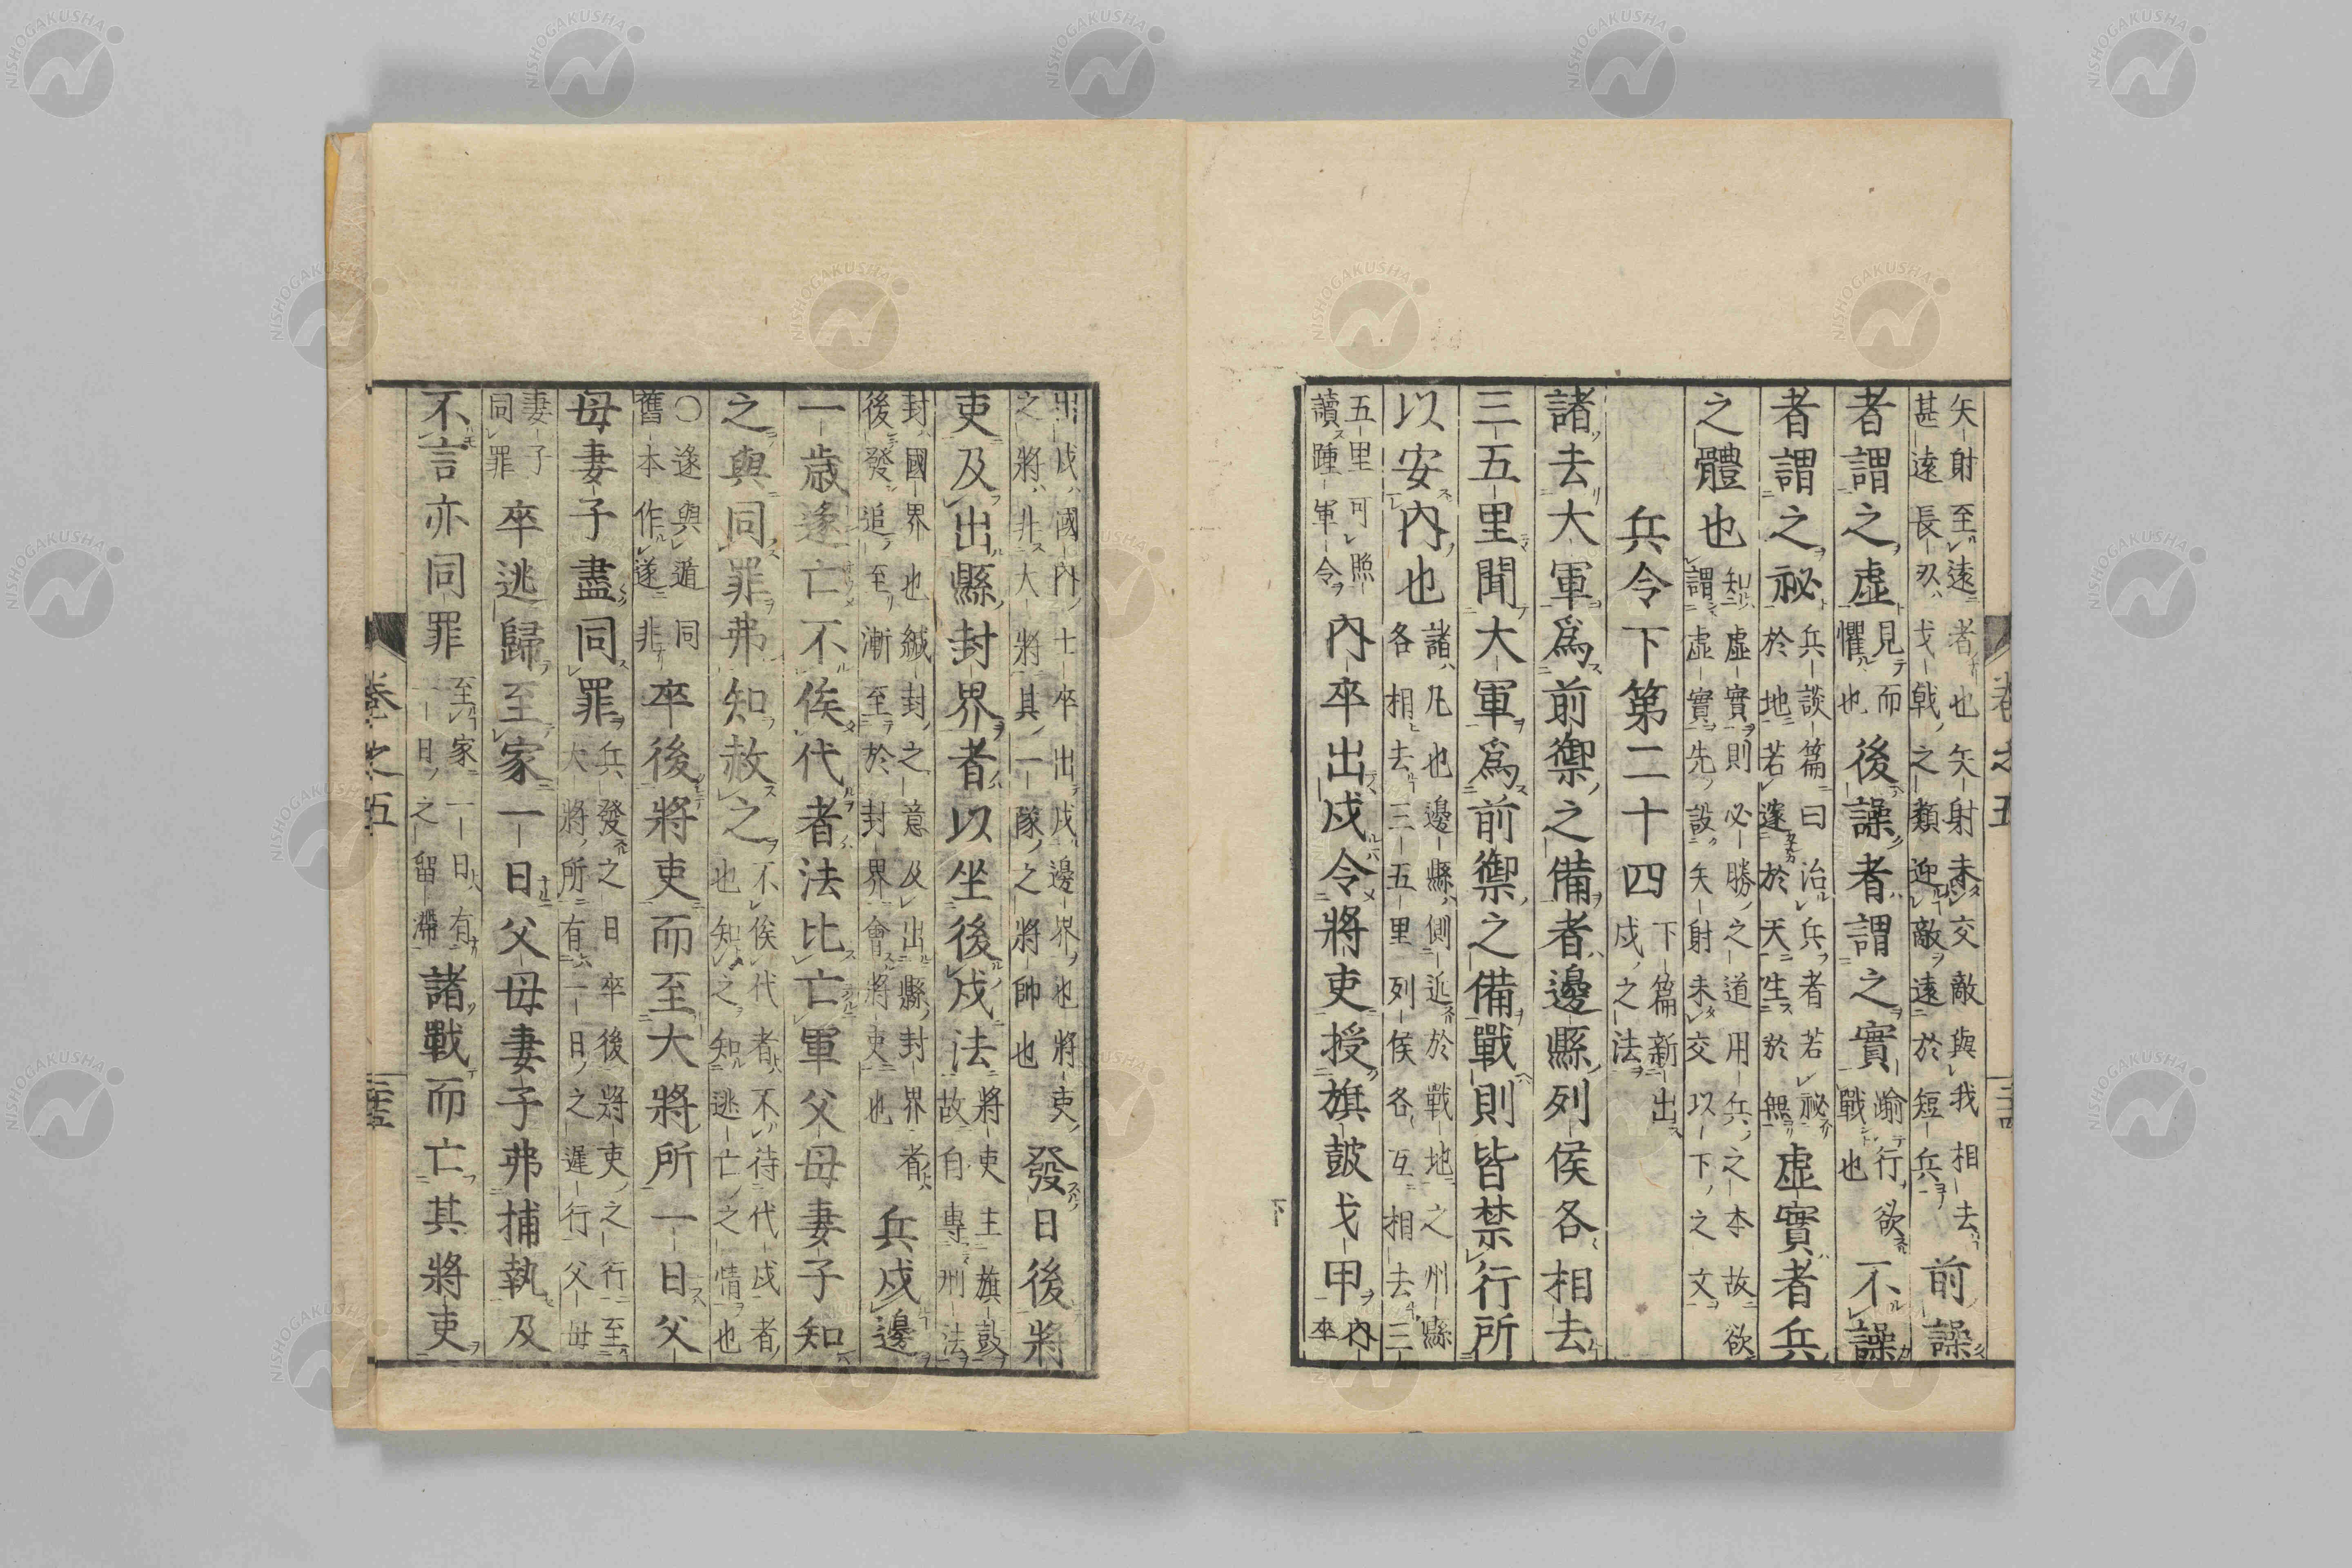 卷之五
矢射至遠者也矢射未交敵與我相去
甚遠長以戈戟之類迎敵遠於短兵
前譟
者謂之虛
見而
懼也
後譟者謂之實
踰行欲
戰也
不譟
者謂之祕
兵談篇曰治兵者若祕
於地若邃於天生於無
虛實者兵
之體也
知虛實則必勝之道用兵之本故欲
謂虛實先設矢射未交以下之文
兵令下第二十四
下篇新出
戍之法
諸去大軍爲前禦之備者邊縣列侯各相去
三五里聞大軍爲前禦之備戰則皆禁行所
以安內也
諸凡也邊縣側近於戰地之州縣
各相去三五里列侯各互相去三
五里可照
讀踵軍令
內卒出戍令將吏授旗鼓戈甲
內
卒
出戍國內士卒出戍邊界也將吏
之將非大將其一隊之將帥也
發日後將
吏及出縣封界者以坐後戍法
將吏主旗鼓
故自專刑法
封國界也緘封之意及出縣封界者
後發追至漸至於封界會將吏也
兵戍邊
一歳遂亡不俟代者法比亡軍父母妻子知
之與同罪弗知赦之
不俟代者不待代戍者
也知之知逃亡之情也
〇遂與遁同
舊本作遂非
卒後將吏而至大將所一日父
母妻子盡同罪
兵發之日卒後將吏之行至
大將所有一日之遲行父母
妻子
同罪
卒逃歸至家一日父母妻子弗捕執及
不言亦同罪
至家一日有
一日之留滯
諸戰而亡其將吏
卷之五
二十五